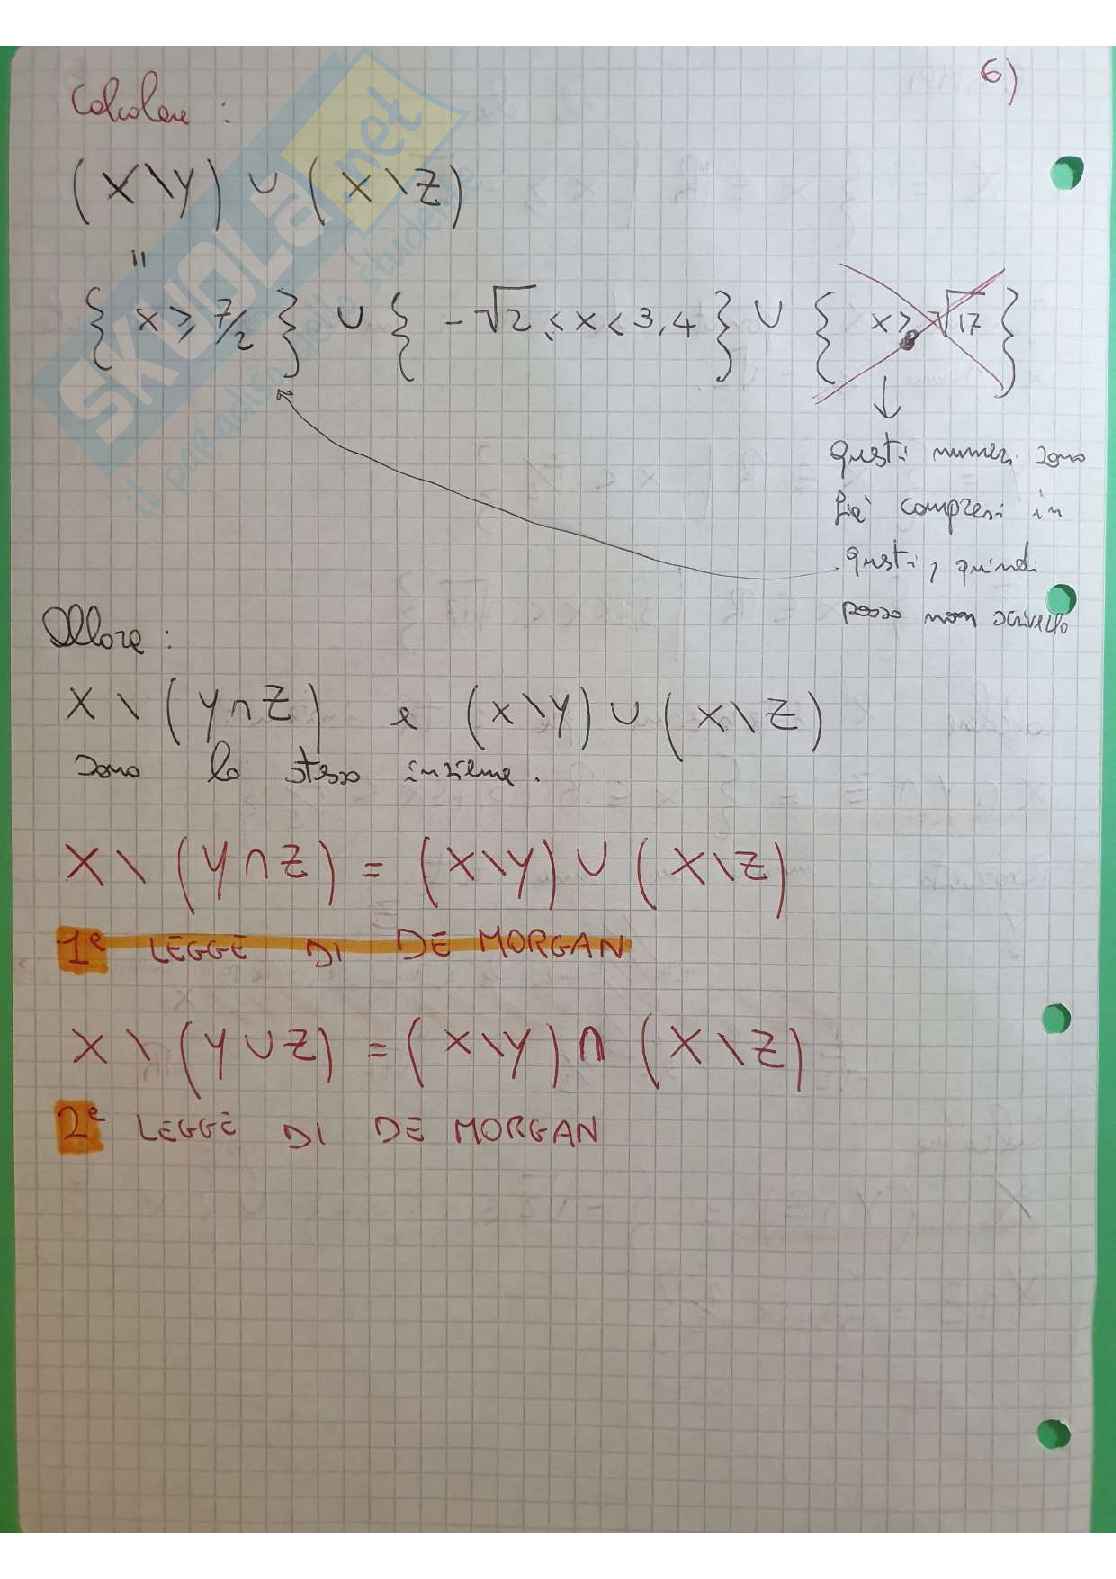 6)
Calcolare :
(X\Y) ∪ (X\Z)
=
{ x ≥ 7/2 } ∪ { -√2 ≤ x < 3,4 } ∪ { x > √17 }
Questi numeri sono
già compresi in
questi, quindi
posso non scriverlo
Allora :
X \ (Y ∩ Z) e (X\Y) ∪ (X\Z)
sono lo stesso insieme.
X \ (Y ∩ Z) = (X\Y) ∪ (X\Z)
1ª LEGGE DI DE MORGAN
X \ (Y ∪ Z) = (X\Y) ∩ (X\Z)
2ª LEGGE DI DE MORGAN
SKUOLA.net